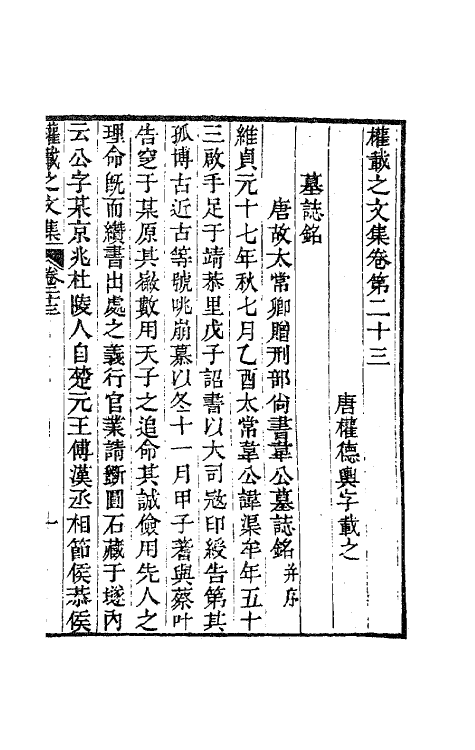 權載之文集卷第二十三
唐權德輿字載之
墓誌銘
唐故太常卿贈刑部尙書韋公墓誌銘并序
維貞元十七年秋七月乙酉太常韋公諱渠牟年五十
三啟手足于靖恭里戊子詔書以大司寇印綬告第其
孤博古近古等號咷崩慕以冬十一月甲子蓍與蔡叶
告窆于某原其嶶數用天子之追命其誠儉用先人之
理命旣而纘書出處之義行官業請斲圓石藏于墜內
云公字某京兆杜陵人自楚元王傅漢丞相節侯恭侯
權載之文集 卷二十三 一